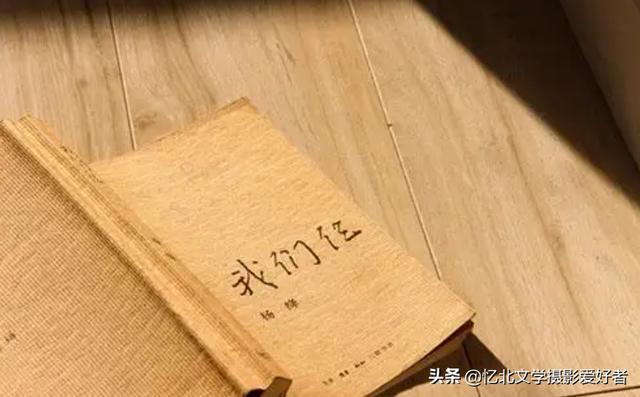 我们仨
杨绛
头条 @忆北文学摄影爱好者